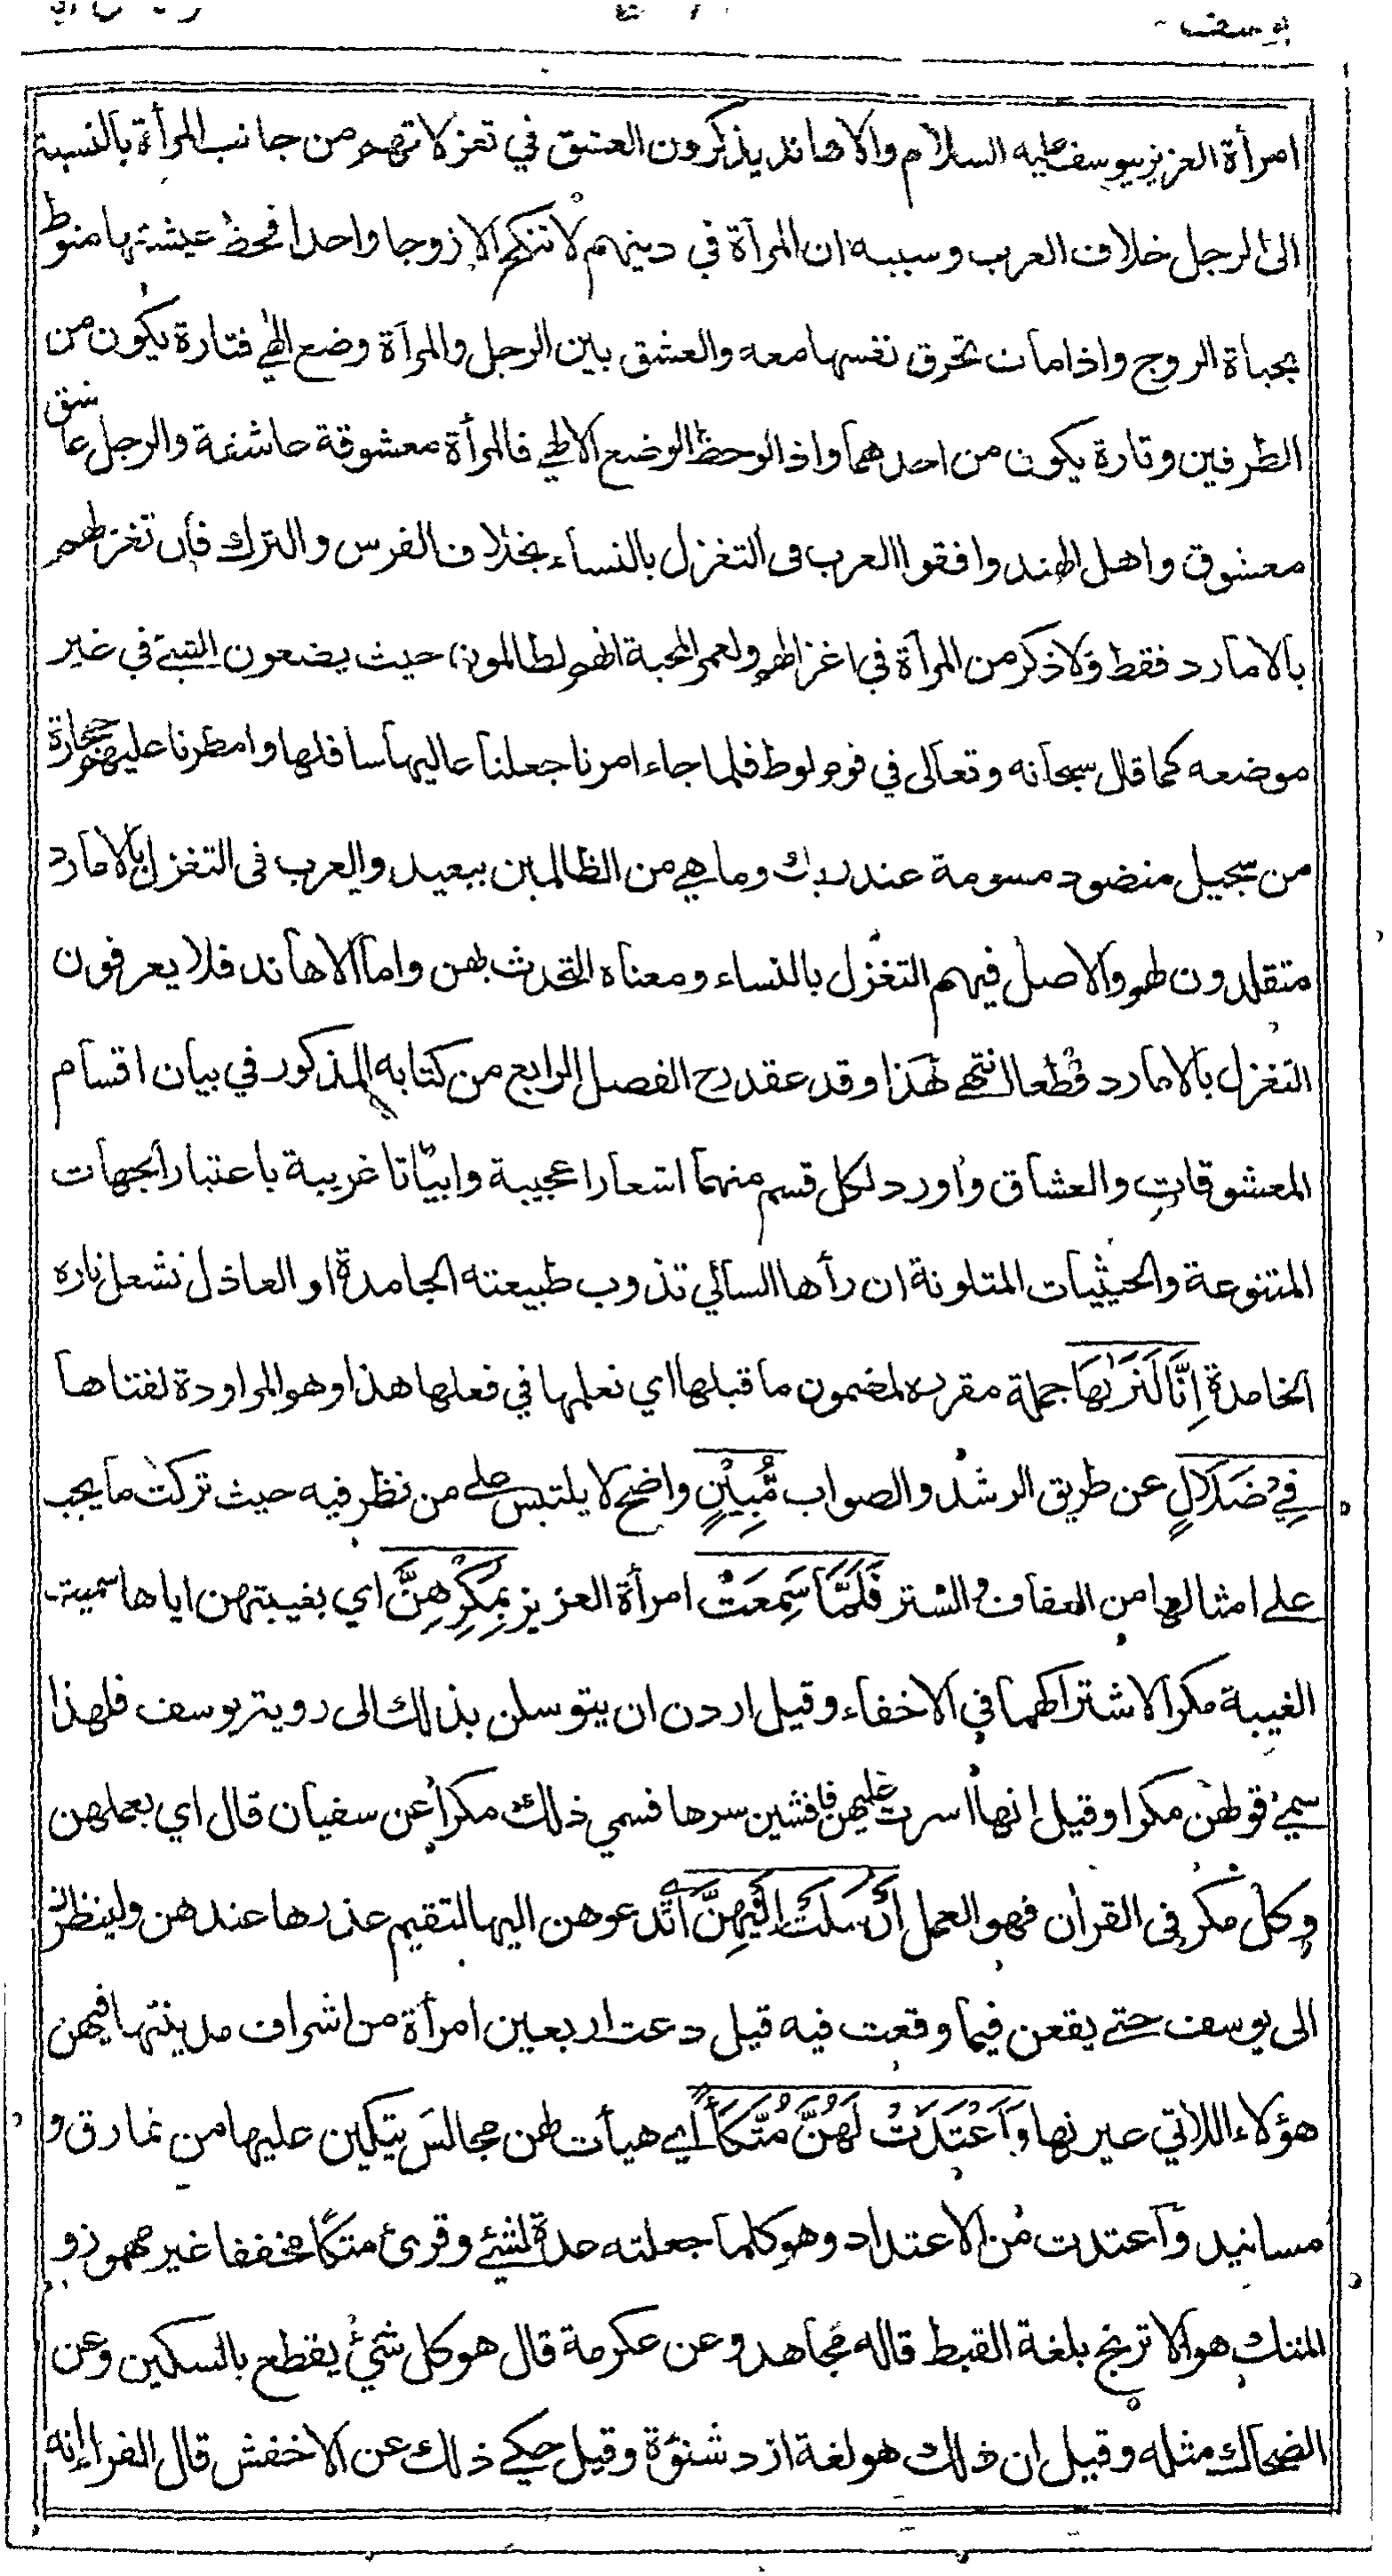 يوسف
امرأة العزيز بيوسف عليه السلام والاهاند يذكرون العشق في تغزلاتهم من جانب المرأة بالنسبة
الى الرجل خلاف العرب وسببه ان المرأة في دينهم لا تنكح الا زوجا واحدا فحظ عيشتها منوط
بحياة الزوج واذا مات تحرق نفسها معه والعشق بين الرجل والمرأة وضع الهي فتارة يكون من
الطرفين وتارة يكون من احدهما واذا لوحظ الوضع الالهي فالمرأة معشوقة عاشقة والرجل عاشق
معشوق واهل الهند وافقوا العرب في التغزل بالنساء بخلاف الفرس والترك فان تغزلهم
بالامارد فقط ولا ذكر من المرأة في اغزالهم ولعمر المحبة انهم لظالمون حيث يضعون الشيء في غير
موضعه كما قال سبحانه وتعالى في قوم لوط فلما جاء امرنا جعلنا عاليها سافلها وامطرنا عليهم حجارة
من سجيل منضود مسومة عند ربك وما هي من الظالمين ببعيد والعرب في التغزل بالامارد
متقلدون لهم والاصل فيهم التغزل بالنساء ومعناه التحدث بهن واما الاهاند فلا يعرفون
التغزل بالامارد قطعا انتهى هذا وقد عقد رح الفصل الرابع من كتابه المذكور في بيان اقسام
المعشوقات والعشاق واورد لكل قسم منهما اشعارا عجيبة وابياتا غريبة باعتبار الجهات
المتنوعة والحيثيات المتلونة ان رأها السالي تذوب طبيعته الجامدة او العاذل تشعل ناره
الخامدة اِنَّا لَنَرٰىهَا جملة مقررة لمضمون ما قبلها اي نعلمها في فعلها هذا وهو المراودة لفتاها
فِيْ ضَلَالٍ عن طريق الرشد والصواب مُّبِيْنٍ واضح لا يلتبس على من نظر فيه حيث تركت ما يجب
على امثالها من العفاف والستر فَلَمَّا سَمِعَتْ امرأة العزيز بِمَكْرِهِنَّ اي بغيبتهن اياها سميت
الغيبة مكرا لاشتراكهما في الاخفاء وقيل اردن ان يتوسلن بذلك الى روية يوسف فلهذا
سمي قولهن مكرا وقيل انها اسرت عليهن فافشين سرها فسمي ذلك مكرا عن سفيان قال اي بعملهن
وكل مكر في القرأن فهو العمل اَرْسَلَتْ اِلَيْهِنَّ اي تدعوهن اليها لتقيم عذرها عندهن ولينظرن
الى يوسف حتى يقعن فيما وقعت فيه قيل دعت اربعين امرأة من اشراف مدينتها فيهن
هؤلاء اللاتي عيرنها وَاَعْتَدَتْ لَهُنَّ مُتَّكَأً اي هيأت لهن مجالس يتكين عليها من نمارق و
مسانيد وأعتدت من الاعتداد وهو كلما جعلته عدة لشيء وقرئ متكا مخففا غير مهموز و
المتك هو الاترنج بلغة القبط قاله مجاهد وعن عكرمة قال هو كل شيء يقطع بالسكين وعن
الضحاك مثله وقيل ان ذلك هو لغة ازد شنؤة وقيل حكي ذلك عن الاخفش قال الفراء إنه